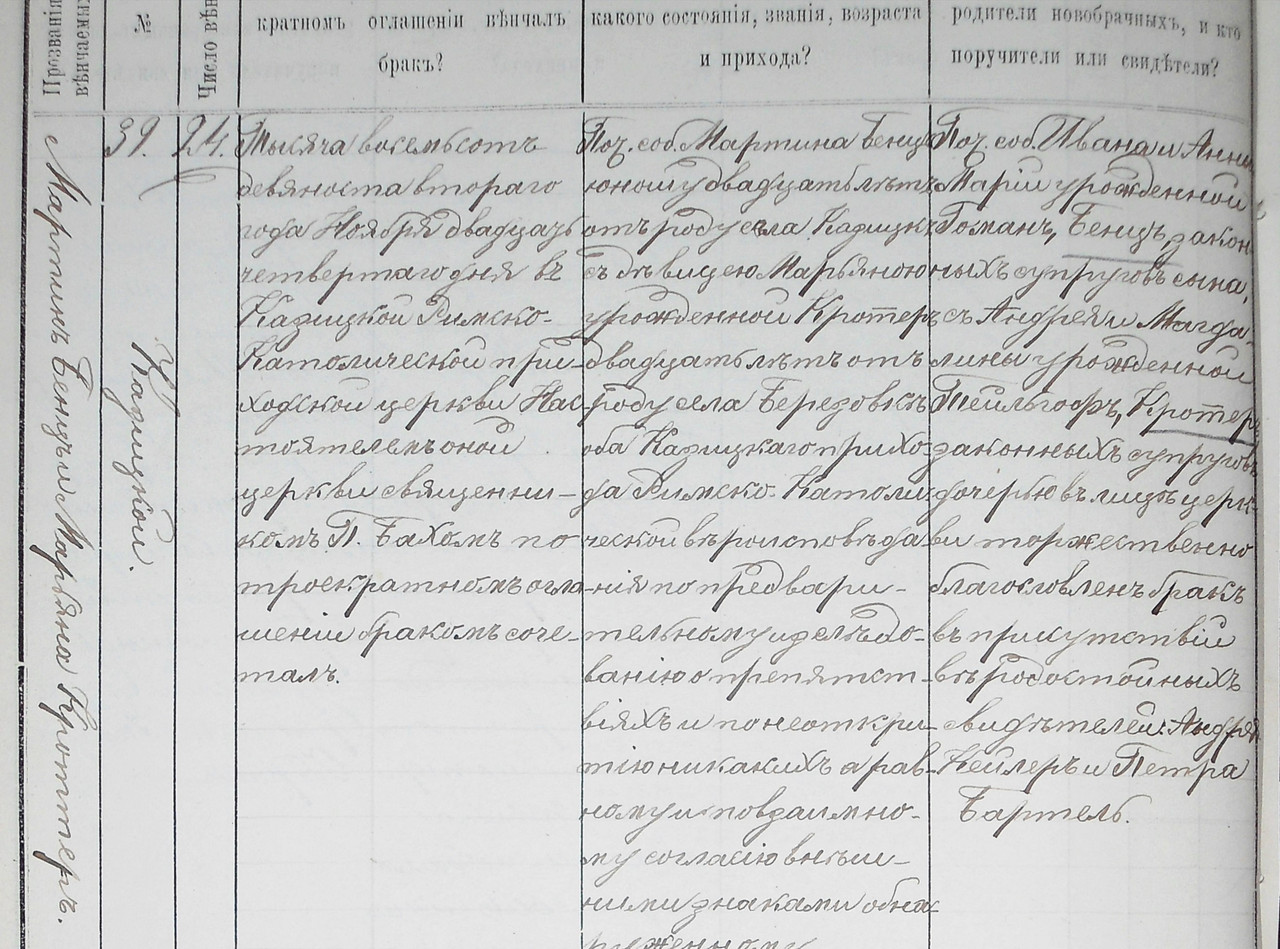 Прозваніе
вѣнчаемыхъ
№
Число вѣн
кратномъ оглашеніи вѣнчалъ
бракъ?
какого состоянія, званія, возраста
и прихода?
родители новобрачныхъ, и кто
поручители или свидѣтели?
Мартинъ Бенцъ и Марьяна Кроттеръ.
39.
Кадицкой.
24.
Тысяча восемьсотъ
девяноста втораго
года Ноября двадцать
четвертаго дня въ
Кадицкой Римско-
Католической при-
ходской церкви Нас-
тоятелемъ оной
церкви священни-
комъ П. Бахомъ по
троекратномъ огла-
шеніи бракомъ соче-
талъ.
Поч. соб. Мартина Бенцъ
юношу двадцать лѣтъ
отъ роду села Кадицкъ
съ дѣвицею Марьяною
урожденной Кротеръ
двадцать лѣтъ отъ
роду села Березовкъ
оба Кадицкаго прихо-
да Римско-Католи-
ческой вѣроисповѣда-
нія по предвари-
тельному изслѣдо-
ванію о препятст-
віяхъ и по неоткри-
тію никакихъ а рав-
ному и по взаимно-
му согласію внѣш-
ними знаками обна-
руженному
Поч. соб. Ивана и Анни
Маріи урожденной
Гоманъ, Бенцъ, закон-
ныхъ супруговъ сына,
съ Андрея и Магда-
лины урожденной
Гейльгофъ, Кротеръ
законныхъ супруговъ
дочерью въ лицѣ церк-
ви торжественно
благословленъ бракъ
въ присутствій
вѣродостойныхъ
свидѣтелей: Андрея
Кейлеръ и Петра
Бартель.